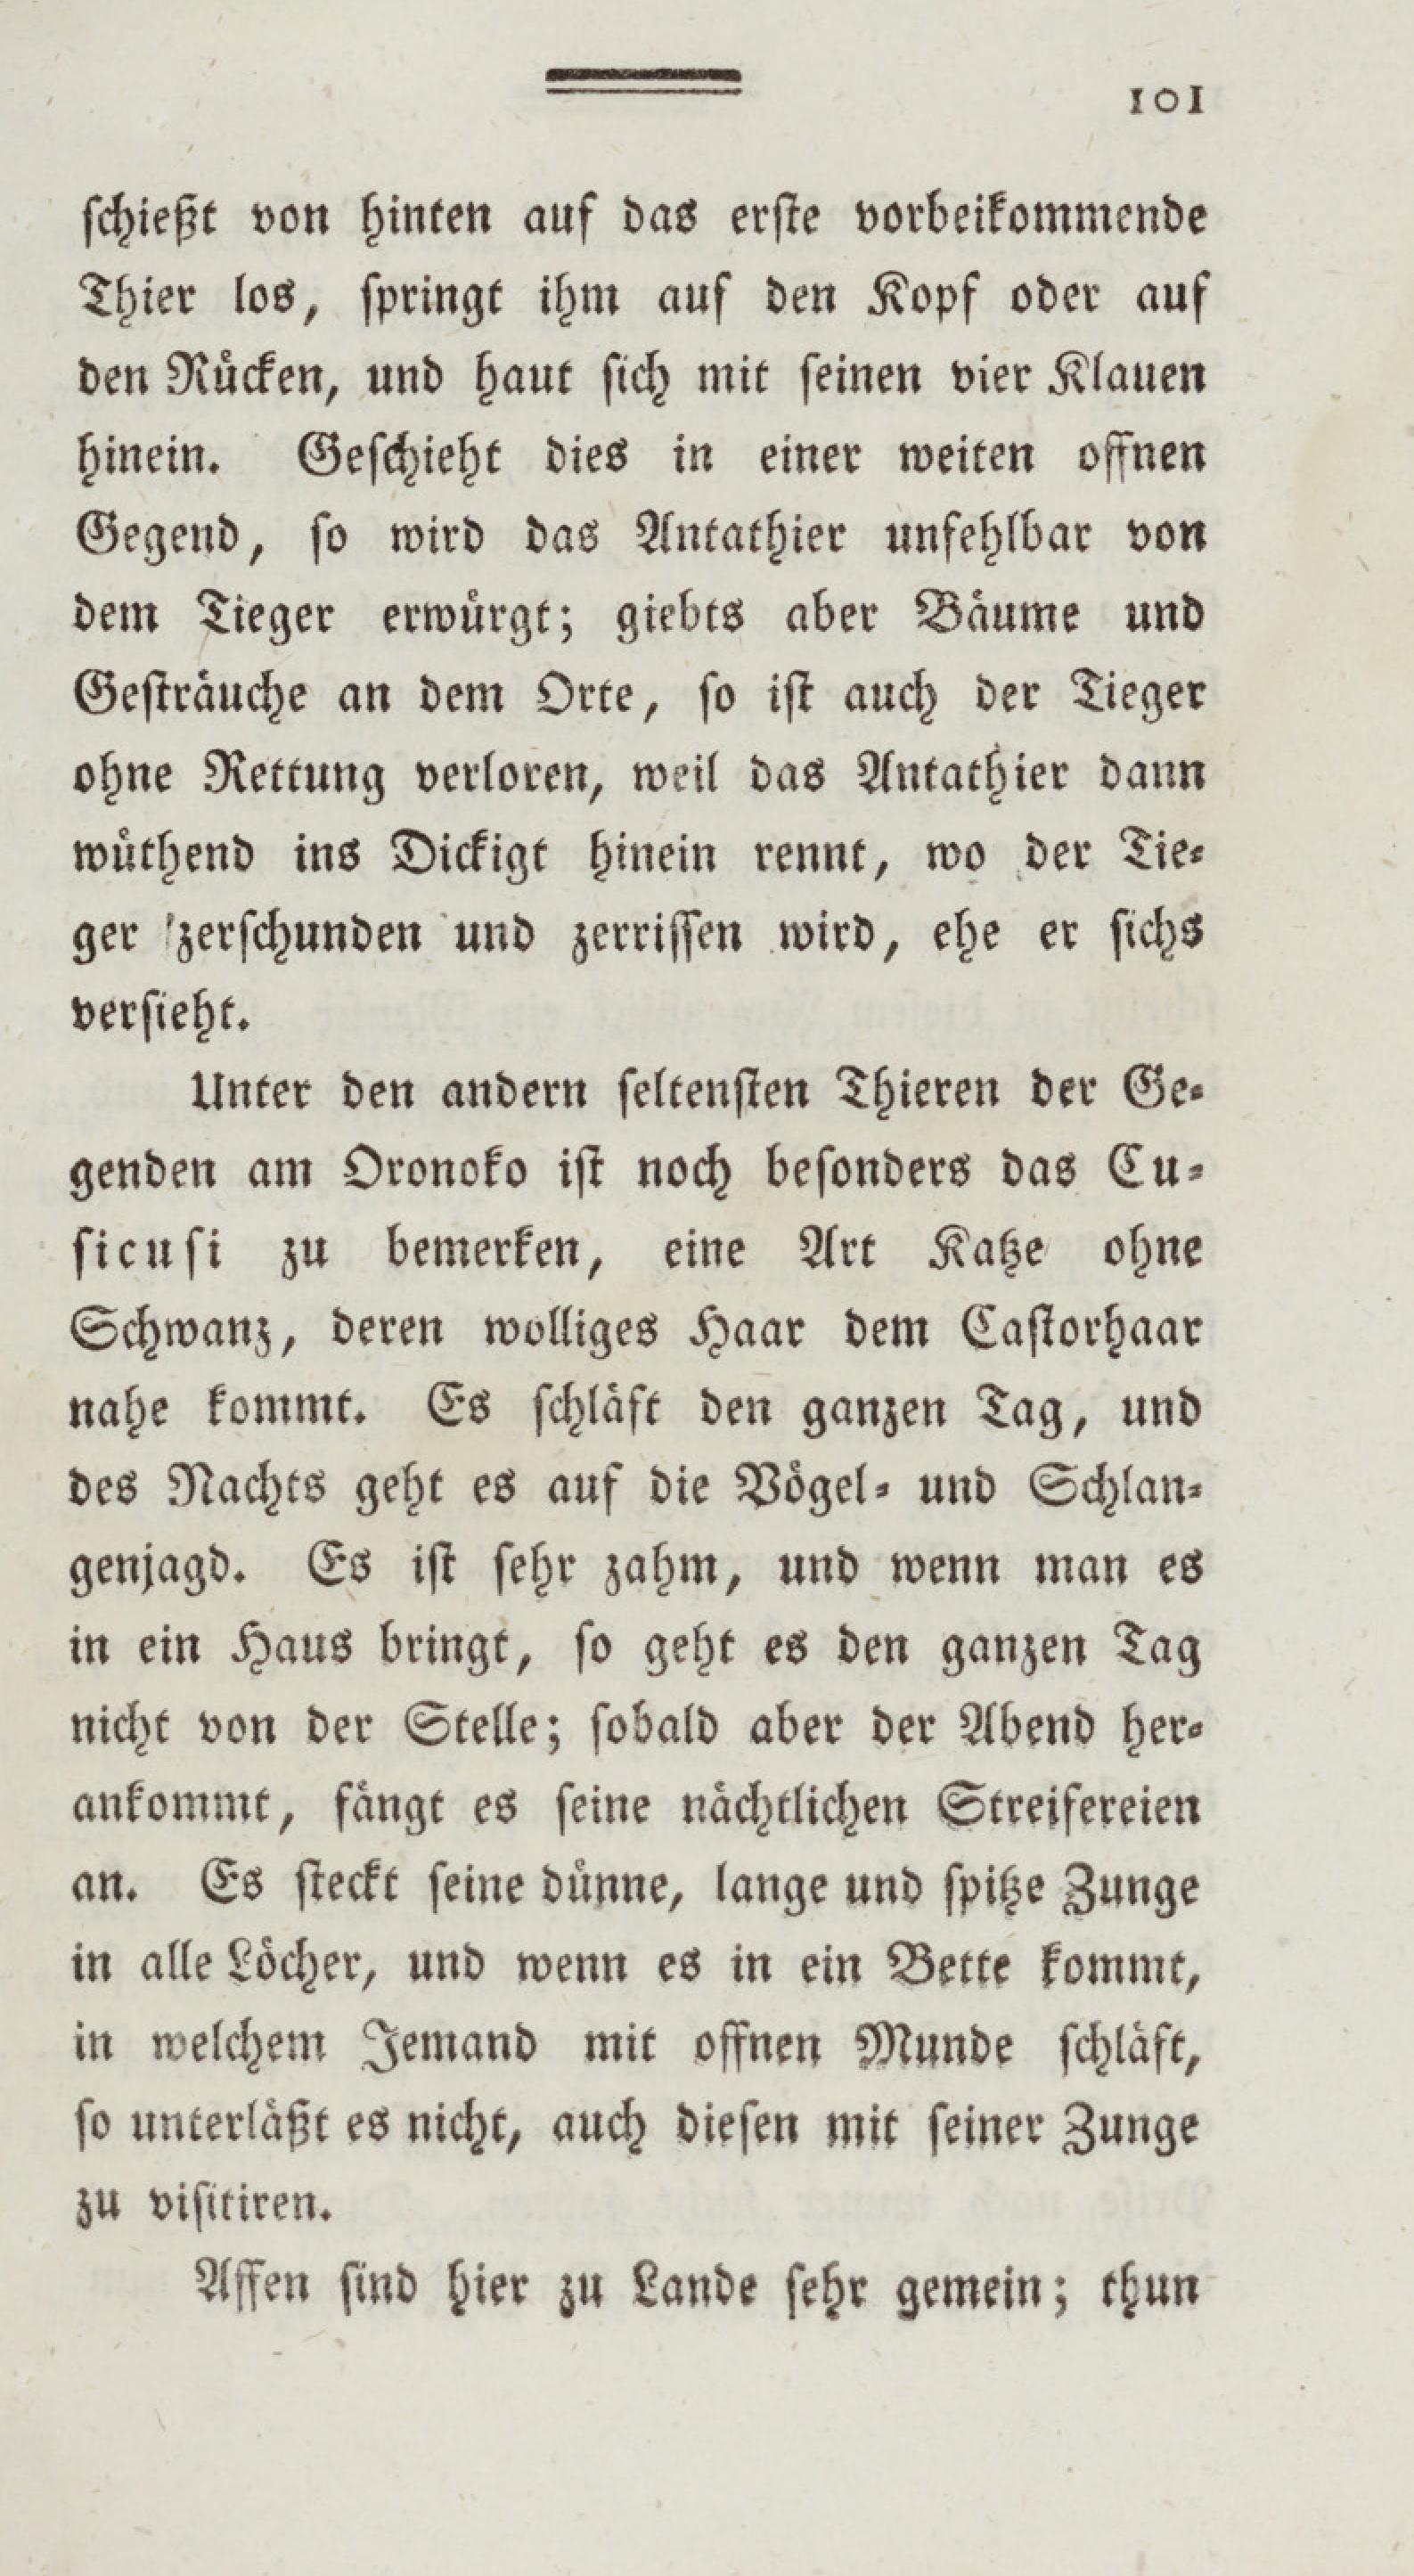 101
schießt von hinten auf das erste vorbeikommende
Thier los, springt ihm auf den Kopf oder auf
den Rücken, und haut sich mit seinen vier Klauen
hinein. Geschieht dies in einer weiten offnen
Gegend, so wird das Antathier unfehlbar von
dem Tieger erwürgt; giebts aber Bäume und
Gesträuche an dem Orte, so ist auch der Tieger
ohne Rettung verloren, weil das Antathier dann
wüthend ins Dickigt hinein rennt, wo der Tie-
ger zerschunden und zerrissen wird, ehe er sichs
versieht.
Unter den andern seltensten Thieren der Ge-
genden am Oronoko ist noch besonders das Cu-
sicusi zu bemerken, eine Art Katze ohne
Schwanz, deren wolliges Haar dem Castorhaar
nahe kommt. Es schläft den ganzen Tag, und
des Nachts geht es auf die Vögel- und Schlan-
genjagd. Es ist sehr zahm, und wenn man es
in ein Haus bringt, so geht es den ganzen Tag
nicht von der Stelle; sobald aber der Abend her-
ankommt, fängt es seine nächtlichen Streifereien
an. Es steckt seine dünne, lange und spitze Zunge
in alle Löcher, und wenn es in ein Bette kommt,
in welchem Jemand mit offnen Munde schläft,
so unterläßt es nicht, auch diesen mit seiner Zunge
zu visitiren.
Affen sind hier zu Lande sehr gemein; thun